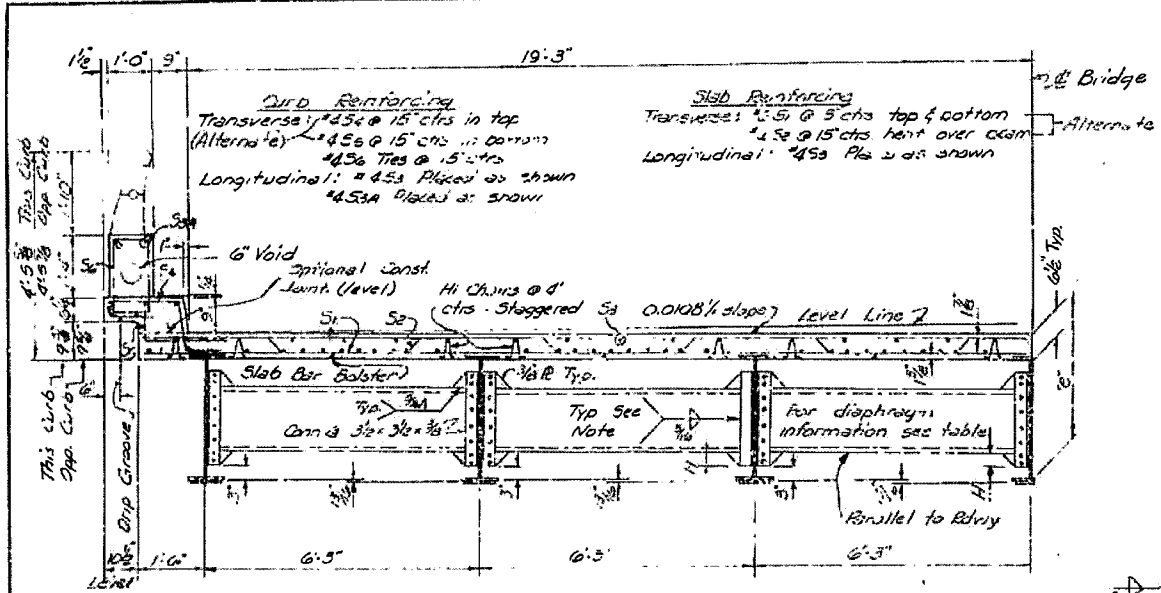 1½" 1'-0" 9" 19'-3"
℄ Bridge
Curb Reinforcing
Transverse: #4S4 @ 15" ctrs in top
(Alternate) #4S5 @ 15" ctrs in bottom
#4S6 Ties @ 15" ctrs
Longitudinal: #4S3 Placed as shown
#4S3A Placed as shown
Slab Reinforcing
Transverse: @ 5" ctrs top & bottom
@ 15" ctrs. bent over beam
Alternate
Longitudinal: #4S3 Placed as shown
This Curb
Opp Curb
1'-10"
S3A
6" Void
Optional Const.
Joint (level)
Hi Chairs @ 4'
ctrs - Staggered
S1
S2
S3
0.0108'/' slope
Level Line
6½" Typ.
Slab Bar Bolster
3/8 ℄ Typ.
Typ.
Conn ∠s 3½ x 3½ x 3/8
Typ See
Note
5/16
For diaphragm
information see table
This Curb
Opp. Curb
Drip Groove
3"
13/16"
H
3"
13/16"
3"
H
Parallel to Rdwy
10½" 1'-6" 6'-3" 6'-3" 6'-3"
Level